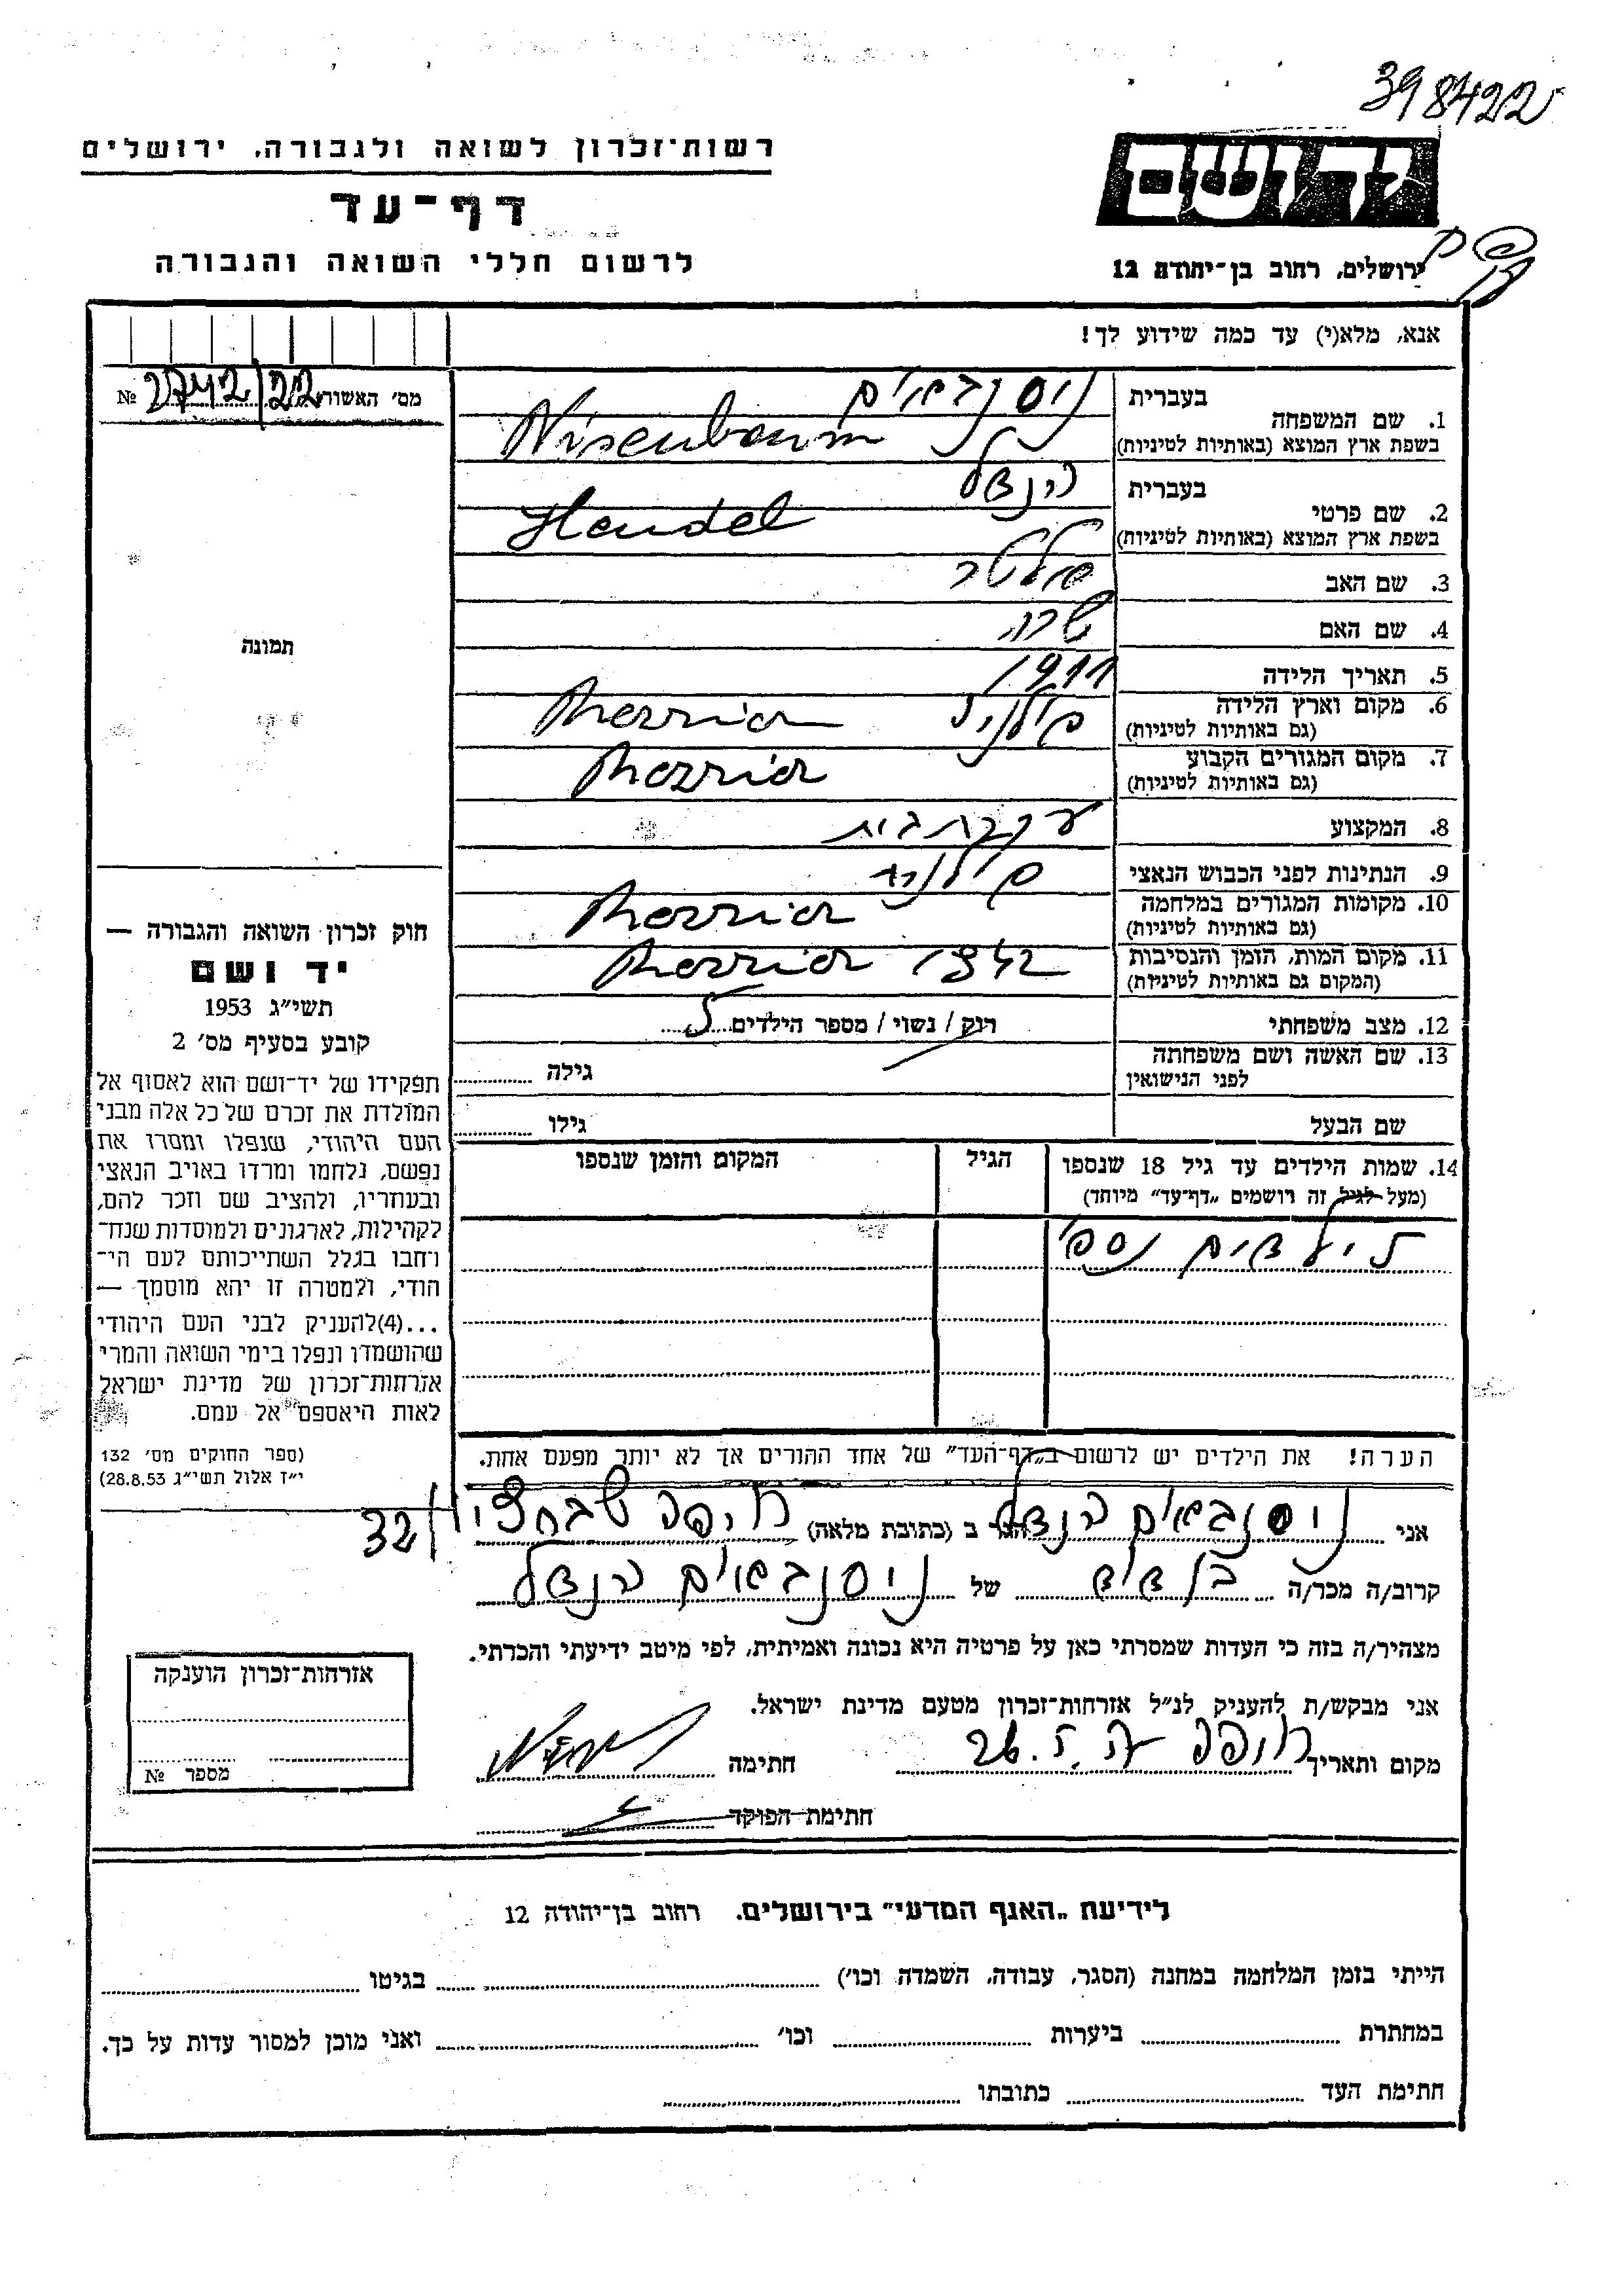 398422
רשות־זכרון לשואה ולגבורה, ירושלים
דף־עד
לרשום חללי השואה והגבורה
יד ושם
ירושלים, רחוב בן־יהודה 12
אנא, מלא(י) עד כמה שידוע לך!
מס׳ האשור 2742/22 №
1. שם המשפחה
בעברית ניסנבאום
בשפת ארץ המוצא (באותיות לטיניות) Nisenbaum
2. שם פרטי
בעברית הנדל
בשפת ארץ המוצא (באותיות לטיניות) Hendel
3. שם האב
4. שם האם שרה
5. תאריך הלידה 1911
6. מקום וארץ הלידה
(גם באותיות לטיניות) פולניה
7. מקום המגורים הקבוע
(גם באותיות לטיניות)
8. המקצוע עקרת בית
9. הנתינות לפני הכבוש הנאצי
10. מקומות המגורים במלחמה
(גם באותיות לטיניות)
11. מקום המות, הזמן והנסיבות
(המקום גם באותיות לטיניות) 1942
12. מצב משפחתי רוק / נשוי / מספר הילדים
13. שם האשה ושם משפחתה
לפני הנישואין
גילה
שם הבעל
גילו
14. שמות הילדים עד גיל 18 שנספו
(מעל לגיל זה רושמים „דף־עד” מיוחד)
הגיל
המקום והזמן שנספו
ילדים נספו
הערה! את הילדים יש לרשום ב„דף־העד” של אחד ההורים אך לא יותר מפעם אחת.
תמונה
חוק זכרון השואה והגבורה —
יד ושם
תשי״ג 1953
קובע בסעיף מס׳ 2
תפקידו של יד־ושם הוא לאסוף אל
המולדת את זכרם של כל אלה מבני
העם היהודי, שנפלו ומסרו את
נפשם, נלחמו ומרדו באויב הנאצי
ובעוזריו, ולהציב שם וזכר להם,
לקהילות, לארגונים ולמוסדות שנח־
רחבו בגלל השתייכותם לעם הי־
הודי, ולמטרה זו יהא מוסמך —
...(4)להעניק לבני העם היהודי
שהושמדו ונפלו בימי השואה והמרי
אזרחות־זכרון של מדינת ישראל
לאות היאספם אל עמם.
(ספר החוקים מס׳ 132
י״ז אלול תשי״ג 28.8.53)
אני ניסנבאום הנדל הגר ב (כתובת מלאה) חיפה 32/
קרוב/ה מכר/ה בן דוד של ניסנבאום הנדל
מצהיר/ה בזה כי העדות שמסרתי כאן על פרטיה היא נכונה ואמיתית, לפי מיטב ידיעתי והכרתי.
אני מבקש/ת להעניק לנ״ל אזרחות־זכרון מטעם מדינת ישראל.
מקום ותאריך חיפה חתימה
חתימת הפוקד
אזרחות־זכרון הוענקה
מספר №
לידיעת „האגף המדעי” בירושלים. רחוב בן־יהודה 12
הייתי בזמן המלחמה במחנה (הסגר, עבודה, השמדה וכו׳) בגיטו
במחתרת ביערות וכו׳ ואני מוכן למסור עדות על כך.
חתימת העד כתובתו